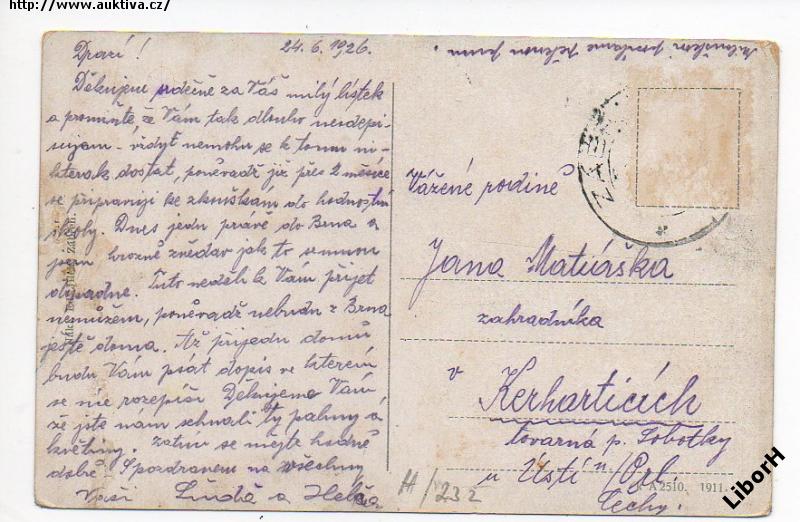 http://www.auktiva.cz/
24. 6. 1926.
Drazí!
Děkujeme srdečně za Váš milý lístek
a promiňte, že Vám tak dlouho neodepi-
suji, vždyť nemohu se k tomu ni-
kterak dostat, poněvadž již přes 2 měsíce
se připravuji ke zkouškám do hodnostní
školy. Dnes jedu právě do Brna a
jsem hrozně zvědav jak to semnou
dopadne. Tuto neděli k Vám přijet
nemůžem, poněvadž nebudu z Brna
ještě doma. Až přijedu domů
budu Vám psát dopis ve kterém
se více rozepíši. Děkujeme Vám
že jste nám sehnali ty palmy a
květiny. Zatím se mějte hodně
dobře. S pozdravem na všechny
Vaši Luďa a
Vážené rodině
Jana Matuáška
zahradníka
v
Kerharticích
továrna p. Sobotky
u Ústí n/Orl.
Čechy.
ZÁB
H/232
A 2510. 1911.
LiborH